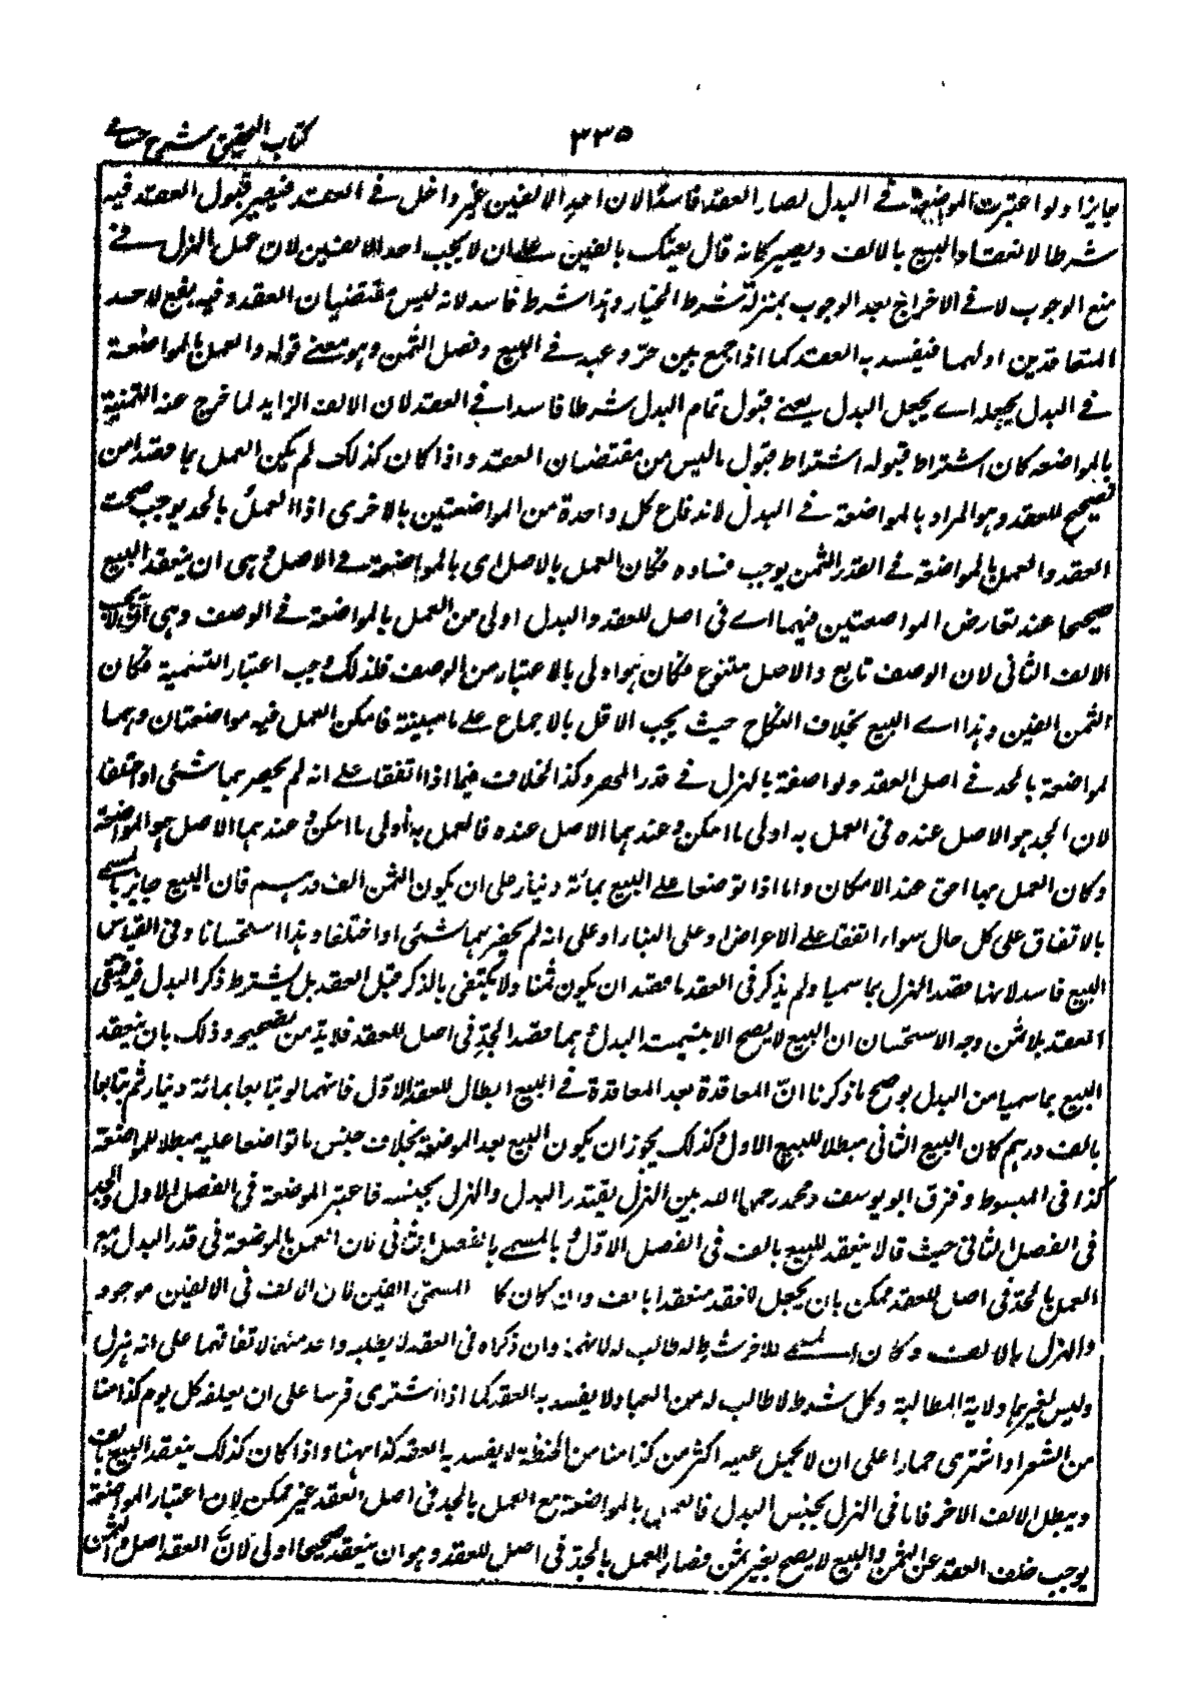 كتاب التحقيق شرح حسامى
٣٣٥
جايزا ولو اعتبرت المواضعة فے البدل لصار العقد فاسدًا لان احد الالفين غير داخل فے العقد فيصير قبول العقد فيه
شرطا لانعقاد البيع بالالف ويصير كانه قال بعتك بالفين على ان لا يجب احد الالفين لان عمل الهزل فے
منع الوجوب لا فے الاخراج بعد الوجوب بمنزلة شرط الخيار وهذا شرط فاسد لانه ليس من مقتضيات العقد وفيه نفع لاحد
المتعاقدين او لهما فيفسد به العقد كما اذا جمع بين حرّ وعبد فے البيع وفصل الثمن وهو معنے قوله والعمل بالمواضعة
فے البدل يجعله اے يجعل البدل يعنے قبول تمام البدل شرطا فاسدا فے العقد لان الالف الزايد لما خرج عن الثمنية
بالمواضعه كان اشتراط قبوله اشتراط قبول ما ليس من مقتضيات العقد واذا كان كذلك لم يكن العمل بما قصدا من
تصحيح العقد وهو المراد بالمواضعة فے البدل لاندفاع كل واحدة من المواضعتين بالاخرى اذ العمل بالجد يوجب صحت
العقد والعمل بالمواضعة فے القدر الثمن يوجب فساده فكان العمل بالاصل اى بالمواضعة فے الاصل وهى ان ينعقد البيع
صحيحا عند تعارض المواضعتين فيهما اے فى اصل العقد والبدل اولى من العمل بالمواضعة فے الوصف وهى ان لا يجب
الالف الثانى لان الوصف تابع والاصل متبوع فكان هو اولى بالاعتبار من الوصف فلذلك وجب اعتبار التسمية فكان
الثمن الفين وهذا اے البيع بخلاف النكاح حيث يجب الاقل بالاجماع على ما سنبينه فامكن العمل فيه مواضعتان وهما
المواضعة بالجد فے اصل العقد والمواضعة بالهزل فے قدر المهر وكذا الخلاف فيما اذا اتفقا على انه لم يحضرهما شئى او اختلفا
لان الجد هو الاصل عنده فى العمل به اولى ما امكن وعندهما الاصل عنده فالعمل به أولى ما امكن وعندهما الاصل هو المواضعة
وكان العمل بها احق عند الامكان واما اذا تواضعا على البيع بمائة دينار على ان يكون الثمن الف درهم فان البيع جايز بالمسمے
بالاتفاق على كل حال سواء اتفقا على الاعراض او على البناء او على انه لم يحضرهما شئى او اختلفا وهذا استحسانا وفى القياس
البيع فاسد لانهما قصدا الهزل بما سميا ولم يذكر فى العقد ما قصدا ان يكون ثمنا ولا يكتفى بالذكر قبل العقد بل يشترط ذكر البدل فيه فبقى
العقد بلا ثمن وجه الاستحسان ان البيع لا يصح الا بتسميت البدل وهما قصدا الجدّ فى اصل العقد فلا بدّ من تصحيحه وذلك بان ينعقد
البيع بما سميا من البدل يوضح ما ذكرنا انّ المعاقدة بعد المعاقدة فے البيع ابطال للعقد الاوّل فانهما لو تبايعا بمائة دينار ثم تبايعا
بالف درهم كان البيع الثانى مبطلا للبيع الاول وكذلك يجوز ان يكون البيع بعد المواضعة بخلاف جنس ما تواضعا عليه مبطلا للمواضعة
كذا فى المبسوط وفرق ابو يوسف ومحمد رحمهما الله بين الهزل بقدر البدل والهزل بجنسه فاعتبرا المواضعة فى الفصل الاول والجد
فى الفصل الثانى حيث قالا ينعقد البيع بالف فى الفصل الاوّل وبالمسمے بالفصل الثانى فان العمل بالمواضعة فى قدر البدل مع
العمل بالجدّ فى اصل العقد ممكن بان يجعل العقد منعقدا بالف وان كان المسمّى الفين لان الالف فى الالفين موجود
والهزل بالالف الاخر شرط لا طالب له لانهما وان ذكراه فى العقد لا يطلبه واحد منهما لاتفاقهما على انه هزل
وليس لغيرهما ولاية المطالبة وكل شرط لا طالب له من العباد لا يفسد به العقد كما اذا اشترى فرسا على ان يعلفه كل يوم كذا منّا
من الشعير او اشترى حمارا على ان لا يحمل عليه اكثر من كذا منا من الحنطة لا يفسد به العقد كذا ههنا واذا كان كذلك ينعقد البيع بالف
ويبطل الالف الاخر فاما فى الهزل بجنس البدل فالعمل بالمواضعة مع العمل بالجد فى اصل العقد غير ممكن لان اعتبار المواضعة
يوجب خلف العقد عن الثمن والبيع لا يصح بغير ثمن فصار العمل بالجدّ فى اصل العقد وهو ان ينعقد صحيحا اولى لانّ العقد اصل والثمن